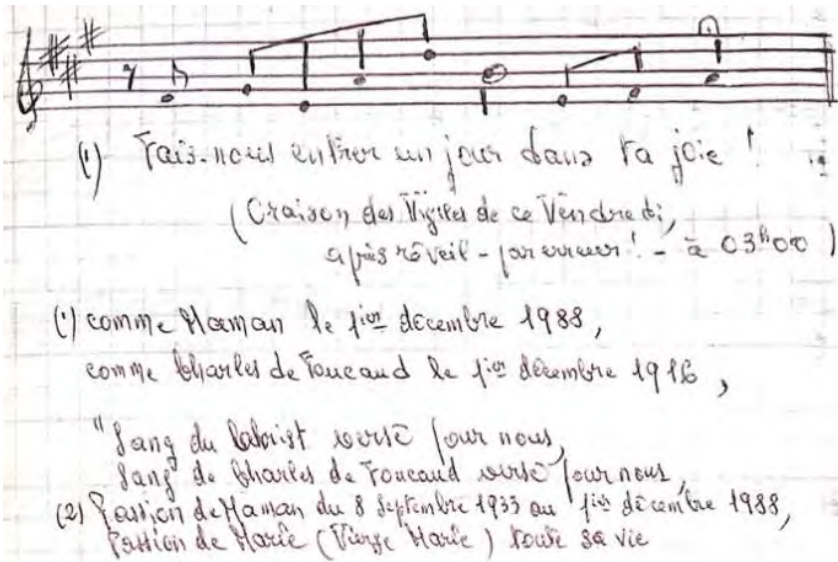 (1) Fais-nous entrer un jour dans ta joie !
(Oraison des Vigiles de ce Vendredi,
après réveil - par erreur ! - à 03h00)
(1) comme Maman le 1ier décembre 1988,
comme Charles de Foucaud le 1ier décembre 1916,
"Sang du Christ versé pour nous,
Sang de Charles de Foucaud versé pour nous,
(2) Passion de Maman du 8 Septembre 1933 au 1ier décembre 1988,
Passion de Marie (Vierge Marie) toute sa vie